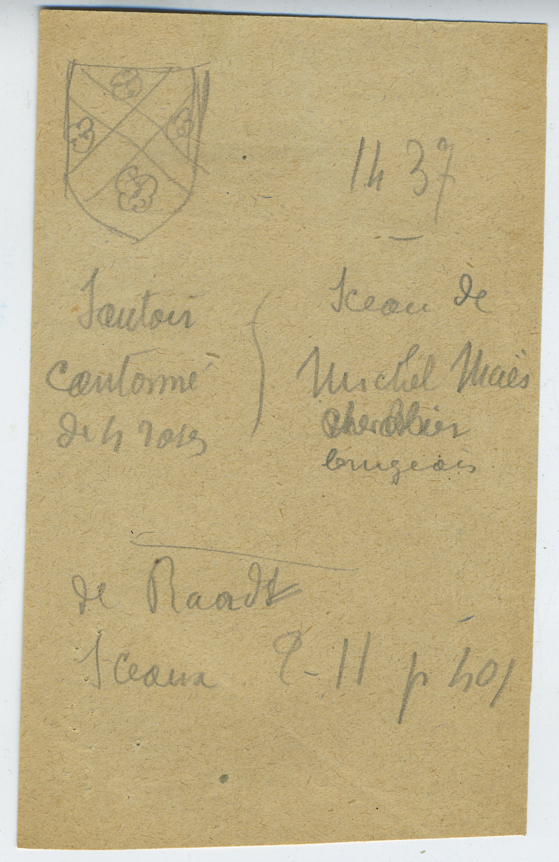 1437
Sautoir
cantonné
de 4 roses
Sceau de
Michel Maës
chevalier
brugeois
de Raadt
Sceaux T-II p 401